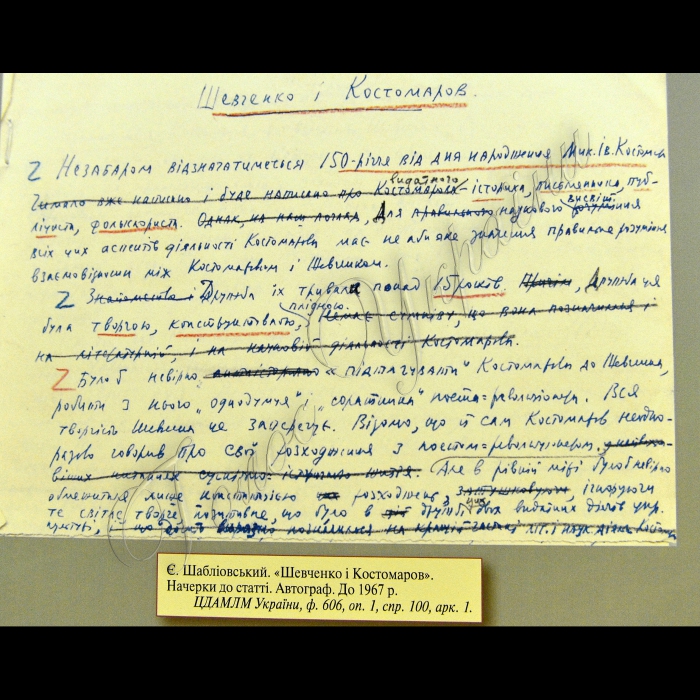 Шевченко і Костомаров.
Незабаром відзначатиметься 150-річчя від дня народження Мик. Ів. Костома
видатного
Чимало вже написано і буде написано про Костомарова історика, письменника, пуб-
висвіт
ліциста, фольклориста. Однак, на наш погляд, Для правильного наукового розуміння
всіх цих аспектів діяльності Костомарова має не абияке значення правильне розуміння
взаємовідносин між Костомаровим і Шевченком.
Знайомство і Дружба їх тривала понад 15 років. Причім, Дружба ця
плідною.
була творчою, конструктивною, Немає сумніву, що вона позначилася і
на літературній, і на науковій діяльності Костомарова.
Було б невірно «підтягувати" Костомарова до Шевченка,
робити з нього „однодумця" і „соратника" поета-революціонера. Вся
творчість Шевченка це заперечує. Відомо, що й сам Костомаров неодно-
разово говорив про свої розходження з поетом-революціонером.
Але в рівній мірі було б невірно
обмежитися лише констатацією розходжень, ігноруючи
те світле творче позитивне, що було в цих двох видатних діячів укр.
Є. Шабліовський. «Шевченко і Костомаров».
Начерки до статті. Автограф. До 1967 р.
ЦДАМЛМ України, ф. 606, оп. 1, спр. 100, арк. 1.